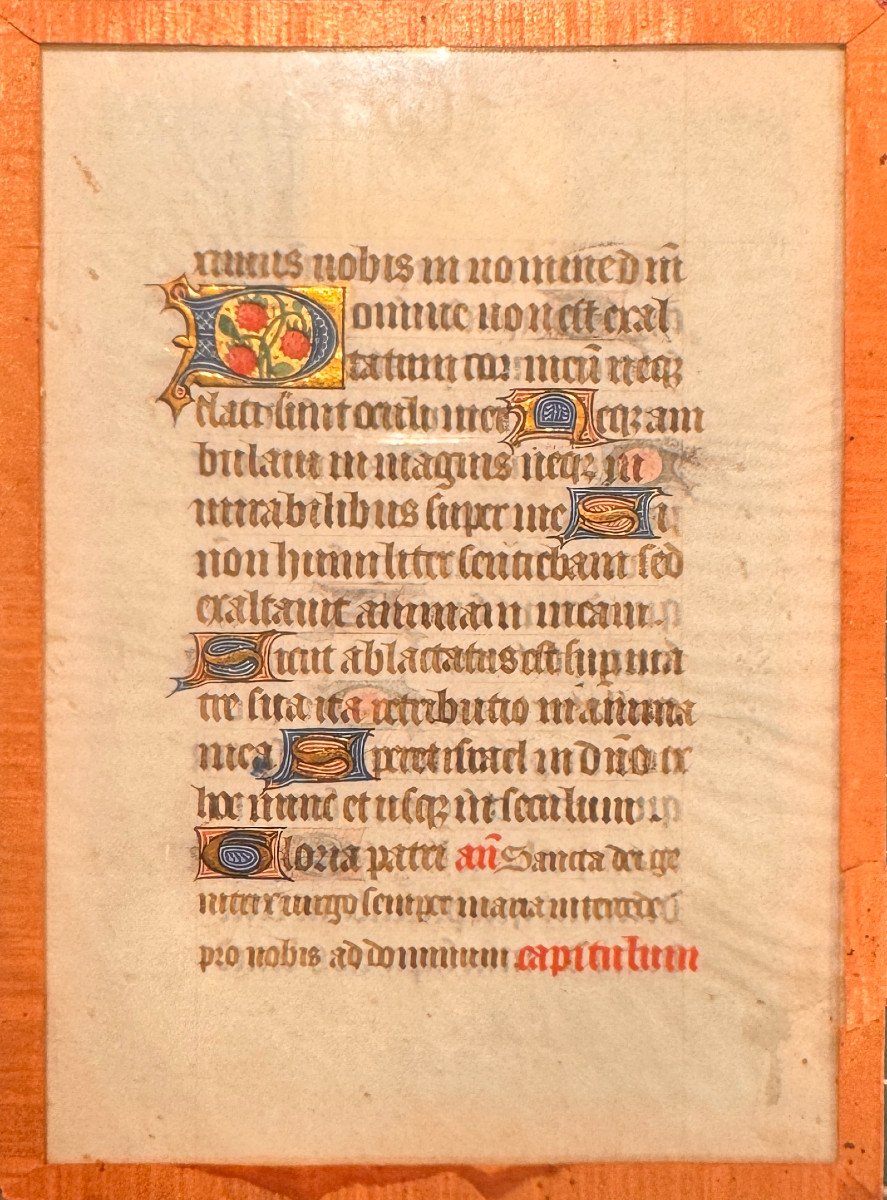 ximus uobis in nomine dn̄i
Domine non est exal
tatum cor meū neqꝫ
elati sunt oculi mei Neqꝫ am
bulaui in magnis neqꝫ in
mirabilibus super me Si
non humiliter sentiebam sed
exaltaui animam meam.
Sicut ablactatus est suꝑ ma
tre sua ita retributio in anima
mea Speret israel in dn̄o ex
hoc nunc et usqꝫ in seculum.
Gloria patri an̄ Sancta dei ge
nitrix uirgo semper maria intercede
pro nobis ad dominum capitulum